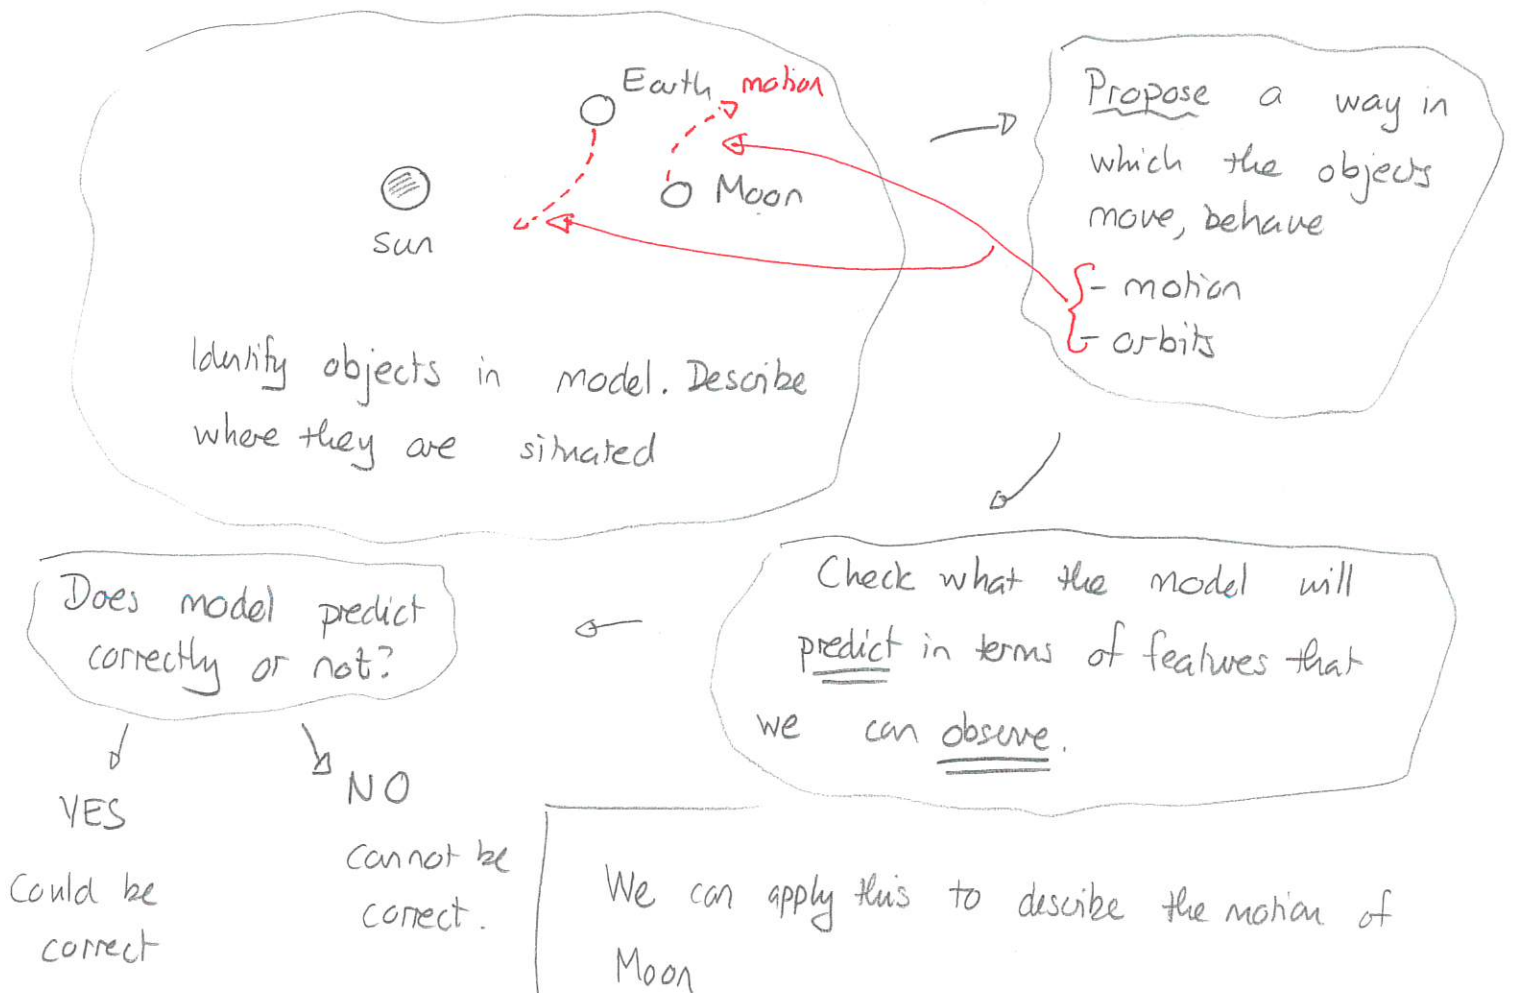 Earth
motion
Sun
Moon
Identify objects in model. Describe
where they are situated
Propose a way in
which the objects
move, behave
- motion
- orbits
Check what the model will
predict in terms of features that
we can observe.
Does model predict
correctly or not?
YES
Could be
correct
NO
Cannot be
correct.
We can apply this to describe the motion of
Moon